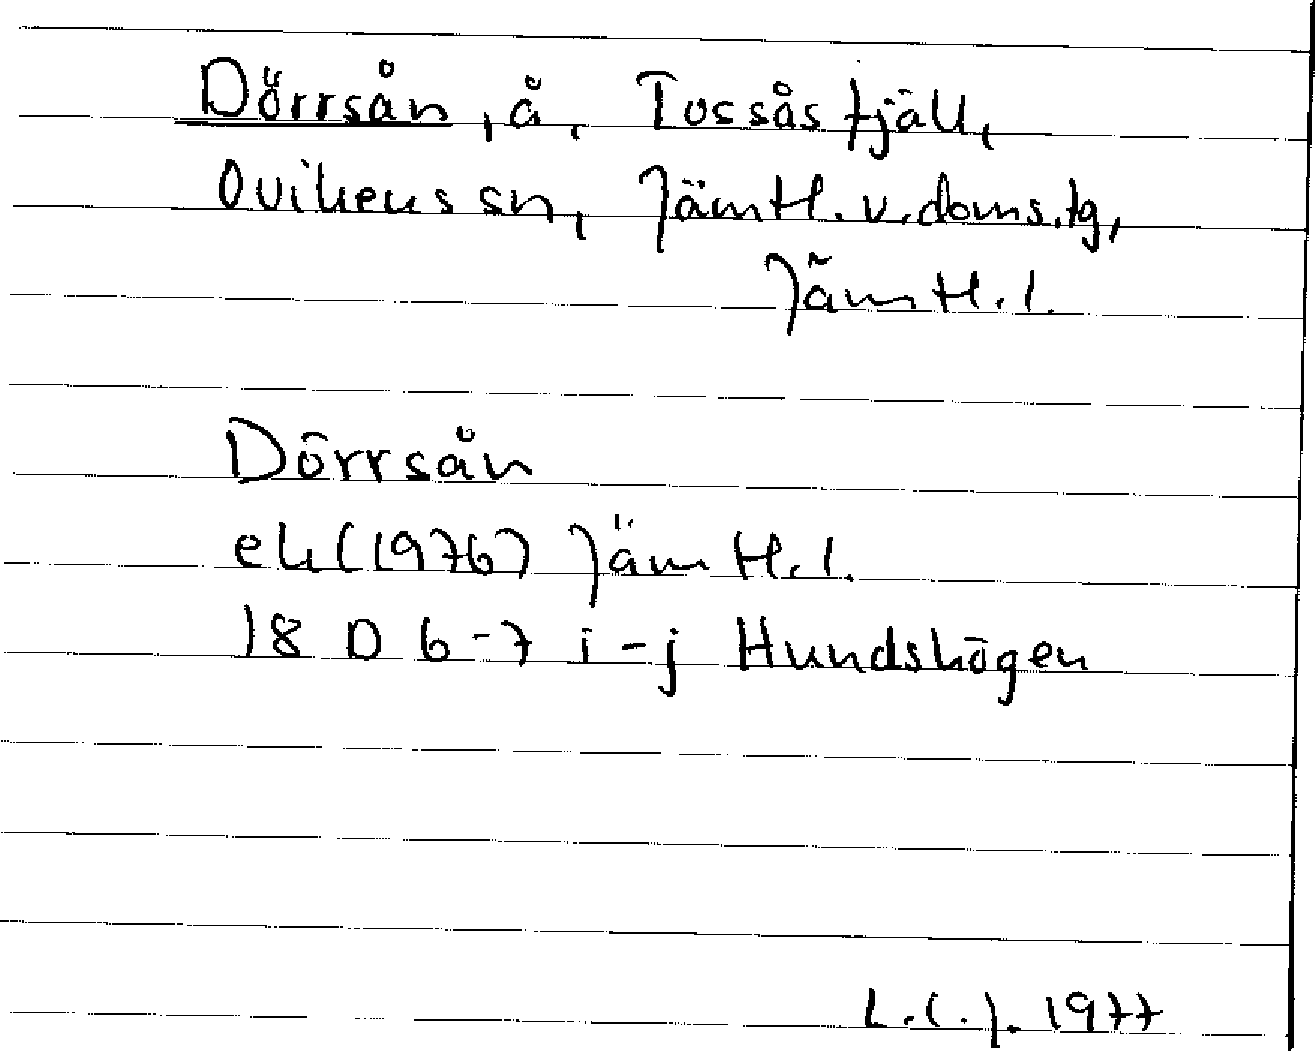 Dörrsån, å, Tossåsfjäll,
Ovikens sn, Jämtl. v. doms. tg,
Jämtl. l.
Dörrsån
ek (1976) Jämtl. l.
18 D 6-7 i-j Hundshögen
L.C.J. 1977